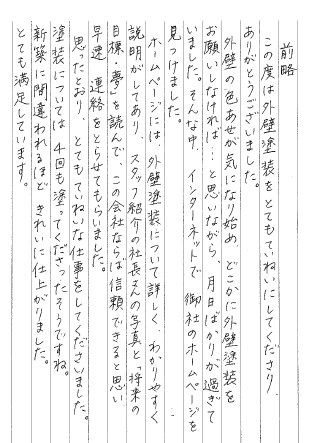 前略
この度は外壁塗装をとてもていねいにしてくださり、
ありがとうございました。
外壁の色あせが気になり始め、どこかに外壁塗装を
お願いしなければ…と思いながら、月日ばかりが過ぎて
いました。そんな中、インターネットで御社のホームページを
見つけました。
ホームページには、外壁塗装について詳しく、わかりやすく
説明がしてあり、スタッフ紹介の社長さんの写真と「将来の
目標・夢」を読んで、この会社ならば信頼できると思い
早速、連絡をとらせてもらいました。
思ったとおり、とてもていねいな仕事をしてくださいました。
塗装については、4回も塗ってくださったそうですね。
新築に間違われるほど、きれいに仕上がりました。
とても満足しています。